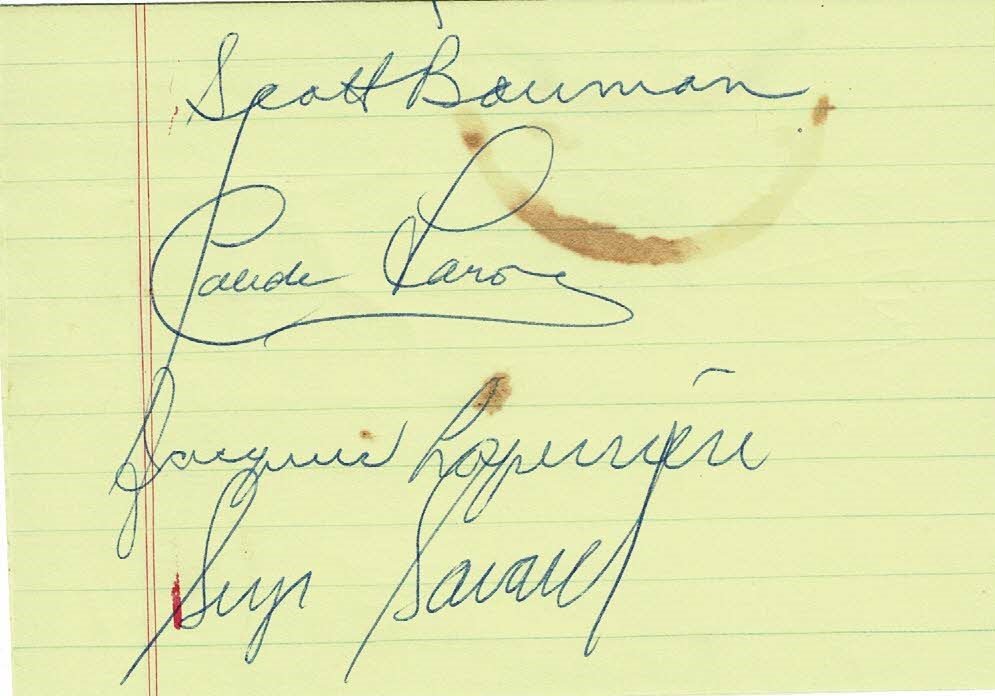 Scott Bowman
Claude Larose
Jacques Laperrière
Serge Savard